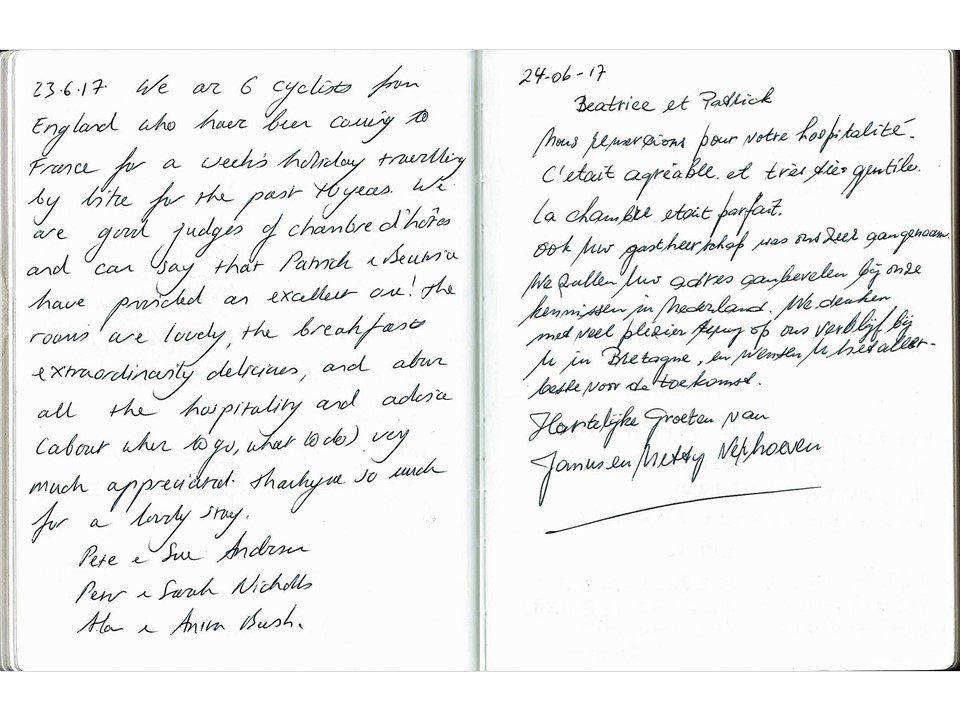 23.6.17. We are 6 cyclists from
England who have been coming to
France for a week's holiday travelling
by bike for the past 10 years. We
are good judges of chambre d'hôtes
and can say that Patrick & Beatrice
have provided an excellent one! The
rooms are lovely, the breakfasts
extraordinarily delicious, and above
all the hospitality and advice
(about where to go, what to do) very
much appreciated. Thankyou so much
for a lovely stay.
Pete & Sue
& Sarah Nicholls
& Bush.
24-06-17
Beatrice et Patrick
Nous remercions pour votre hospitalité.
C'etait agréable. et très très gentile.
La chambre etait parfait.
Ook Uw gastheerschap was ons zeer aangenaam.
We zullen Uw adres aanbevelen bij onze
kennissen in Nederland. We denken
met veel plezier terug op ons verblijf bij
U in Bretagne, en wensen U het aller-
beste voor de toekomst.
Hartelijke Groeten van
Janus en Metty Verhoeven